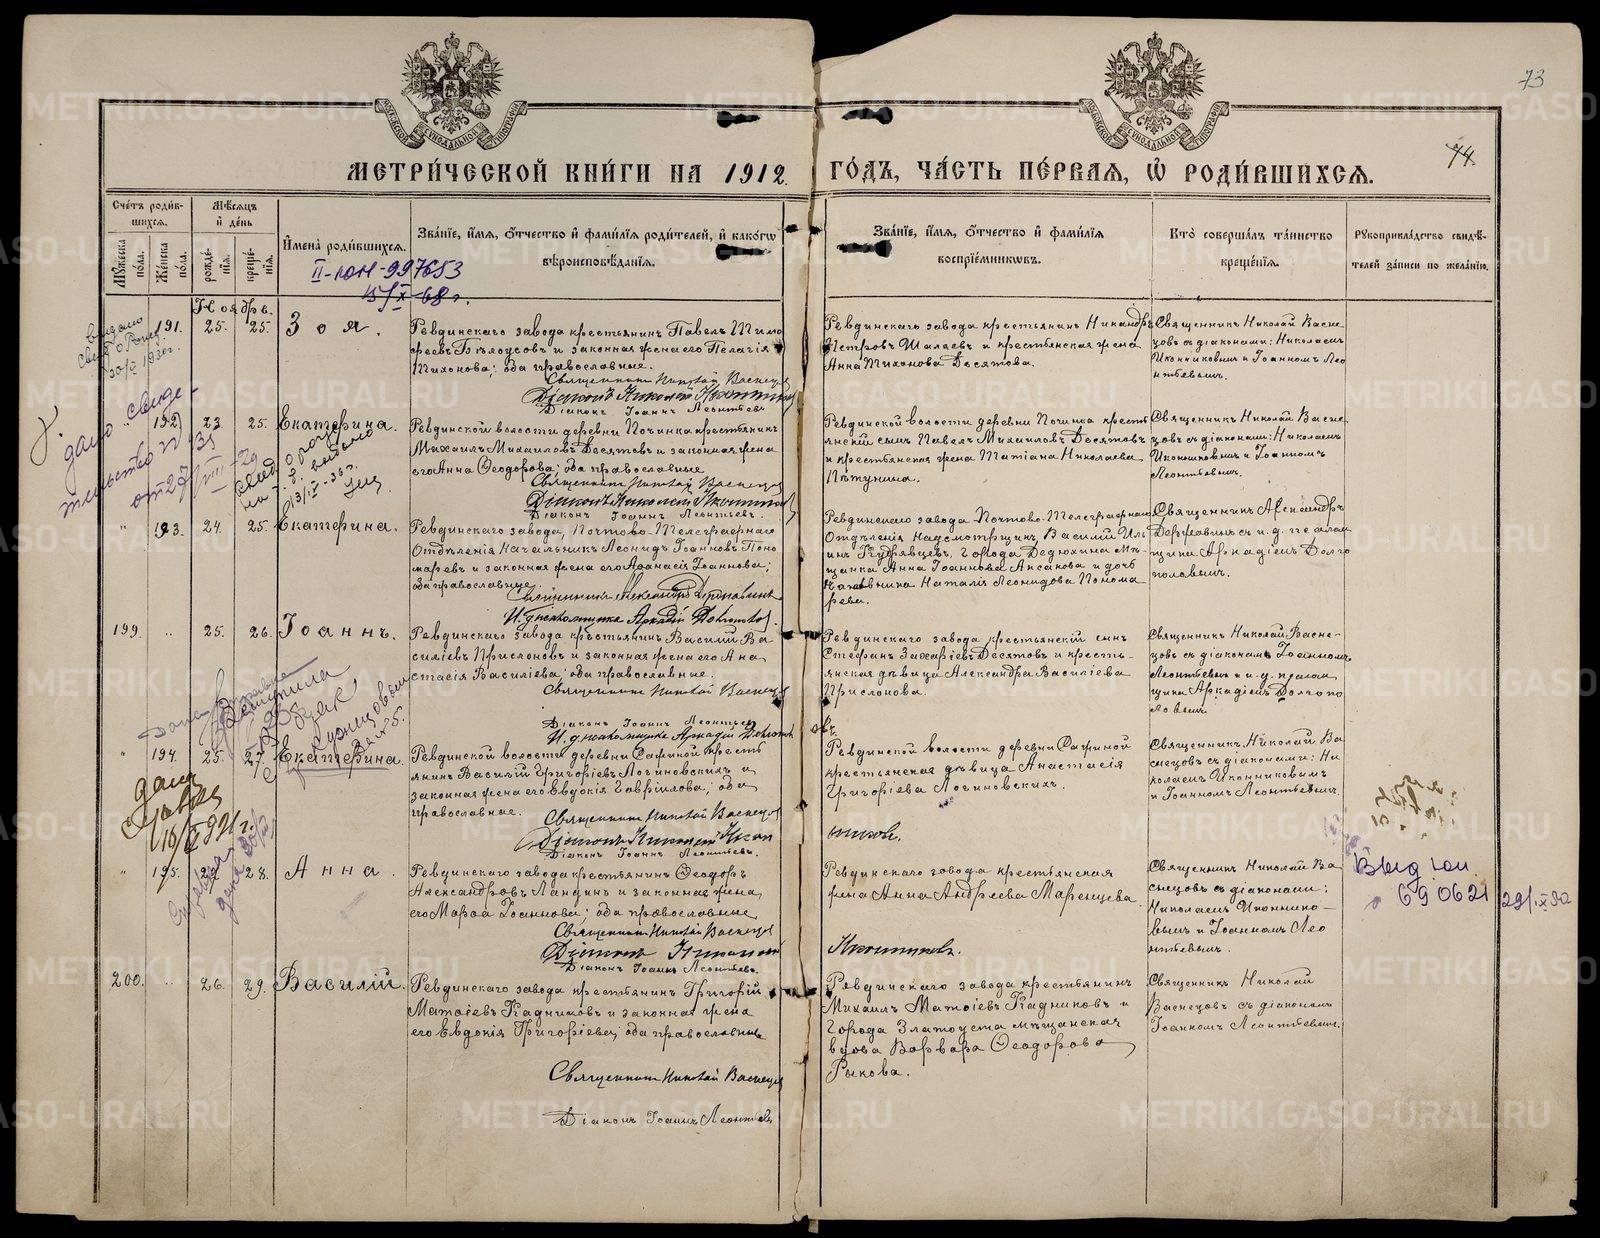 73
74
МЕТРИ́ЧЕСКОЙ КНИ́ГИ НА 1912 ГО́ДЪ, ЧА́СТЬ ПЕ́РВАЯ, Ѡ҆ РОДИ́ВШИХСЯ.
Сче́тъ роди́в-
шихся.
Му́жеска по́ла.
Же́нска по́ла.
Мѣ́сяцъ
и҆ де́нь
рожде́-
нїя.
креще́-
нїя.
И҆мена̀ роди́вшихся.
II-ЮН-997653
15/X-68 г.
Зва́нїе, и҆́мя, ѻ҆́тчество и҆ фами́лїя роди́телей, и҆ како́гѡ
вѣроисповѣ́данїя.
Зва́нїе, и҆́мя, ѻ҆́тчество и҆ фами́лїя
воспрїе́мниковъ.
Кто̀ соверша́лъ та́инство
креще́нїя.
Рꙋкоприкла́дство свидѣ́-
телей за́писи по жела́нїю.
Ноябрь.
191. 25. 25. Зоя.
Ревдинскаго завода крестьянинъ Павелъ Тимо
феевъ Бѣлоусовъ и законная жена его Пелагія
Тихонова; оба православные.
Священникъ Николай Васнецов
Діаконъ Николай Иконников
Діаконъ Іоаннъ Леонтьевъ
Ревдинскаго завода крестьянинъ Никандръ
Петровъ Шалаевъ и крестьянская жена
Анна Тихонова Десятова.
Священникъ Николай Васне
цовъ съ діаконами: Николаемъ
Иконниковымъ и Іоанномъ Лео
нтьевымъ.
192. 23 25. Екатерина.
Ревдинской волости деревни Починка крестьянинъ
Михаилъ Михаиловъ Десятовъ и законная жена
его Анна Ѳеодорова; оба православные
Священникъ Николай Васнецов
Діаконъ Николай Иконников
Діаконъ Іоаннъ Леонтьевъ.
Ревдинской волости деревни Починка крестья
янскій сынъ Павелъ Михаиловъ Десятовъ
и крестьянская жена Татіана Николаева
Пѣтунина.
Священникъ Николай Васне
цовъ съ діаконами: Николаемъ
Иконниковымъ и Іоанномъ
Леонтьевымъ.
" 193. 24. 25. Екатерина.
Ревдинскаго завода, Почтово-Телеграфнаго
Отдѣленія Начальникъ Леонидъ Іоанновъ Поно
маревъ и законная жена его Аѳанасія Іоаннова;
оба православные.
Священникъ Александръ Державинъ
И. д. псаломщика Аркадій Долгополов.
Ревдинскаго завода Почтово-Телеграфнаго
Отдѣленія Надсмотрщикъ Василій Иль
инъ Кудрявцевъ, Города Дедюхина мѣ
щанка Анна Іоаннова Аксакова и дочь
чиновника Наталія Леонидова Понома
рева.
Священникъ Александръ
Державинъ съ и. д. псалом
щика Аркадіемъ Долго
половымъ.
199. " 25. 26. Іоаннъ.
Ревдинскаго завода крестьянинъ Василій Ва
силіевъ Прислоновъ и законная жена его Ана
стасія Василіева; оба православные.
Священникъ Николай Васнецов
Діаконъ Іоаннъ Леонтьевъ
И. д. псаломщика Аркадій Долгополовъ.
Ревдинскаго завода крестьянскій сынъ
Стефанъ Захаріевъ Десятовъ и кресть-
янская дѣвица Александра Василіева
Прислонова.
Священникъ Николай Васне-
цовъ съ діакономъ Іоанномъ
Леонтьевымъ и и. д. псалом
щика Аркадіемъ Долгопо
ловымъ.
" 194. 25. 27. Екатерина.
Ревдинской волости деревни Сажиной кресть
янинъ Василій Григоріевъ Логиновскихъ и
законная жена его Евдокія Гавріилова; оба
православные.
Священникъ Николай Васнецов
Діаконъ Николай Иконников.
Діаконъ Іоаннъ Леонтьевъ.
Ревдинской волости деревни Сажиной
крестьянская дѣвица Анастасія
Григоріева Логиновскихъ.
Священникъ Николай Ва
снецовъ съ діаконами: Ни
колаемъ Иконниковымъ
и Іоанномъ Леонтьевымъ.
" 195. 27 28. Анна.
Ревдинскаго завода крестьянинъ Ѳеодоръ
Александровъ Ландинъ и законная жена
его Марѳа Іоаннова; оба православные
Священникъ Николай Васнецов
Діаконъ Николай Иконников.
Діаконъ Іоаннъ Леонтьевъ.
Ревдинскаго завода крестьянская
жена Анна Андреева Маренцева.
Священникъ Николай Ва
снецовъ съ діаконами:
Николаемъ Иконнико-
вымъ и Іоанномъ Лео
нтьевымъ.
Выд юи.
690621 29/IX 52
200. " 26. 29. Василій.
Ревдинскаго завода крестьянинъ Григорій
Матѳіевъ Кадниковъ и законная жена
его Евдокія Григоріева; оба православные
Священникъ Николай Васнецов
Діаконъ Іоаннъ Леонтьевъ
Ревдинскаго завода крестьянинъ
Михаилъ Матѳіевъ Кадниковъ и
города Златоуста мѣщанская
вдова Варвара Ѳеодорова
Рыкова.
Священникъ Николай
Васнецовъ съ діакономъ
Іоанномъ Леонтьевымъ.
METRIKI.GASO-URAL.RU